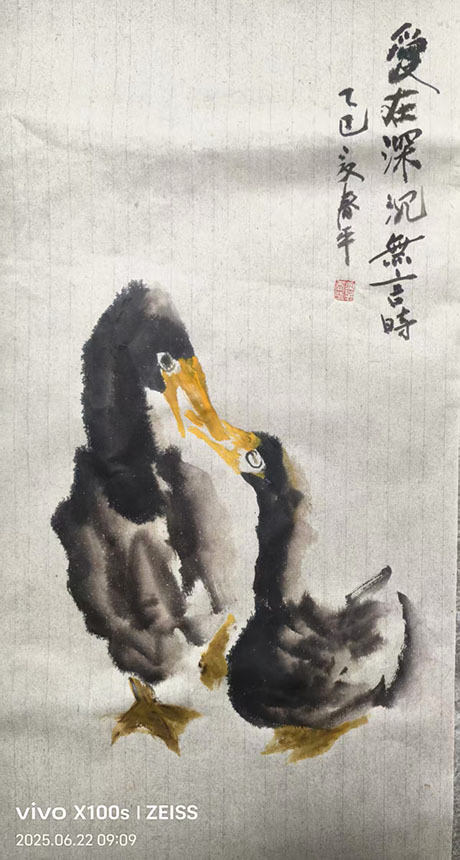 愛在深沉無言時
乙巳夏春平
vivo X100s | ZEISS
2025.06.22 09:09